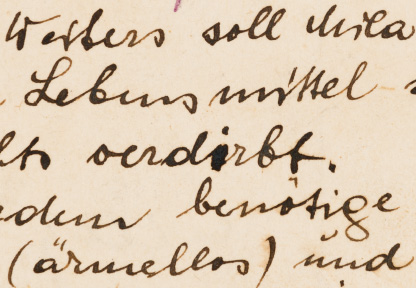 Weiters soll Mila
Lebensmittel
verdirbt.
benötige
(ärmellos) und